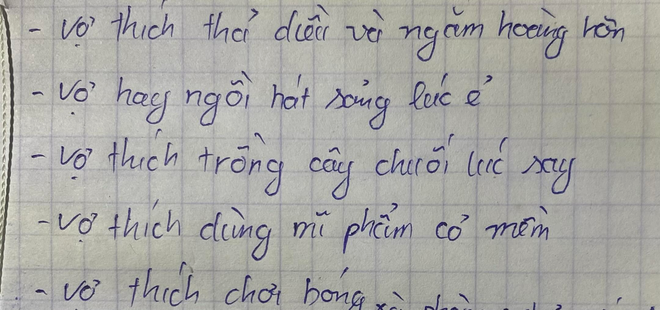 - Vợ thích thả diều và ngắm hoàng hôn
- Vợ hay ngồi hát sảng lúc ẻ
- Vợ thích trồng cây chuối lúc say
- Vợ thích dùng mĩ phẩm cỏ mềm
- Vợ thích chơi bóng